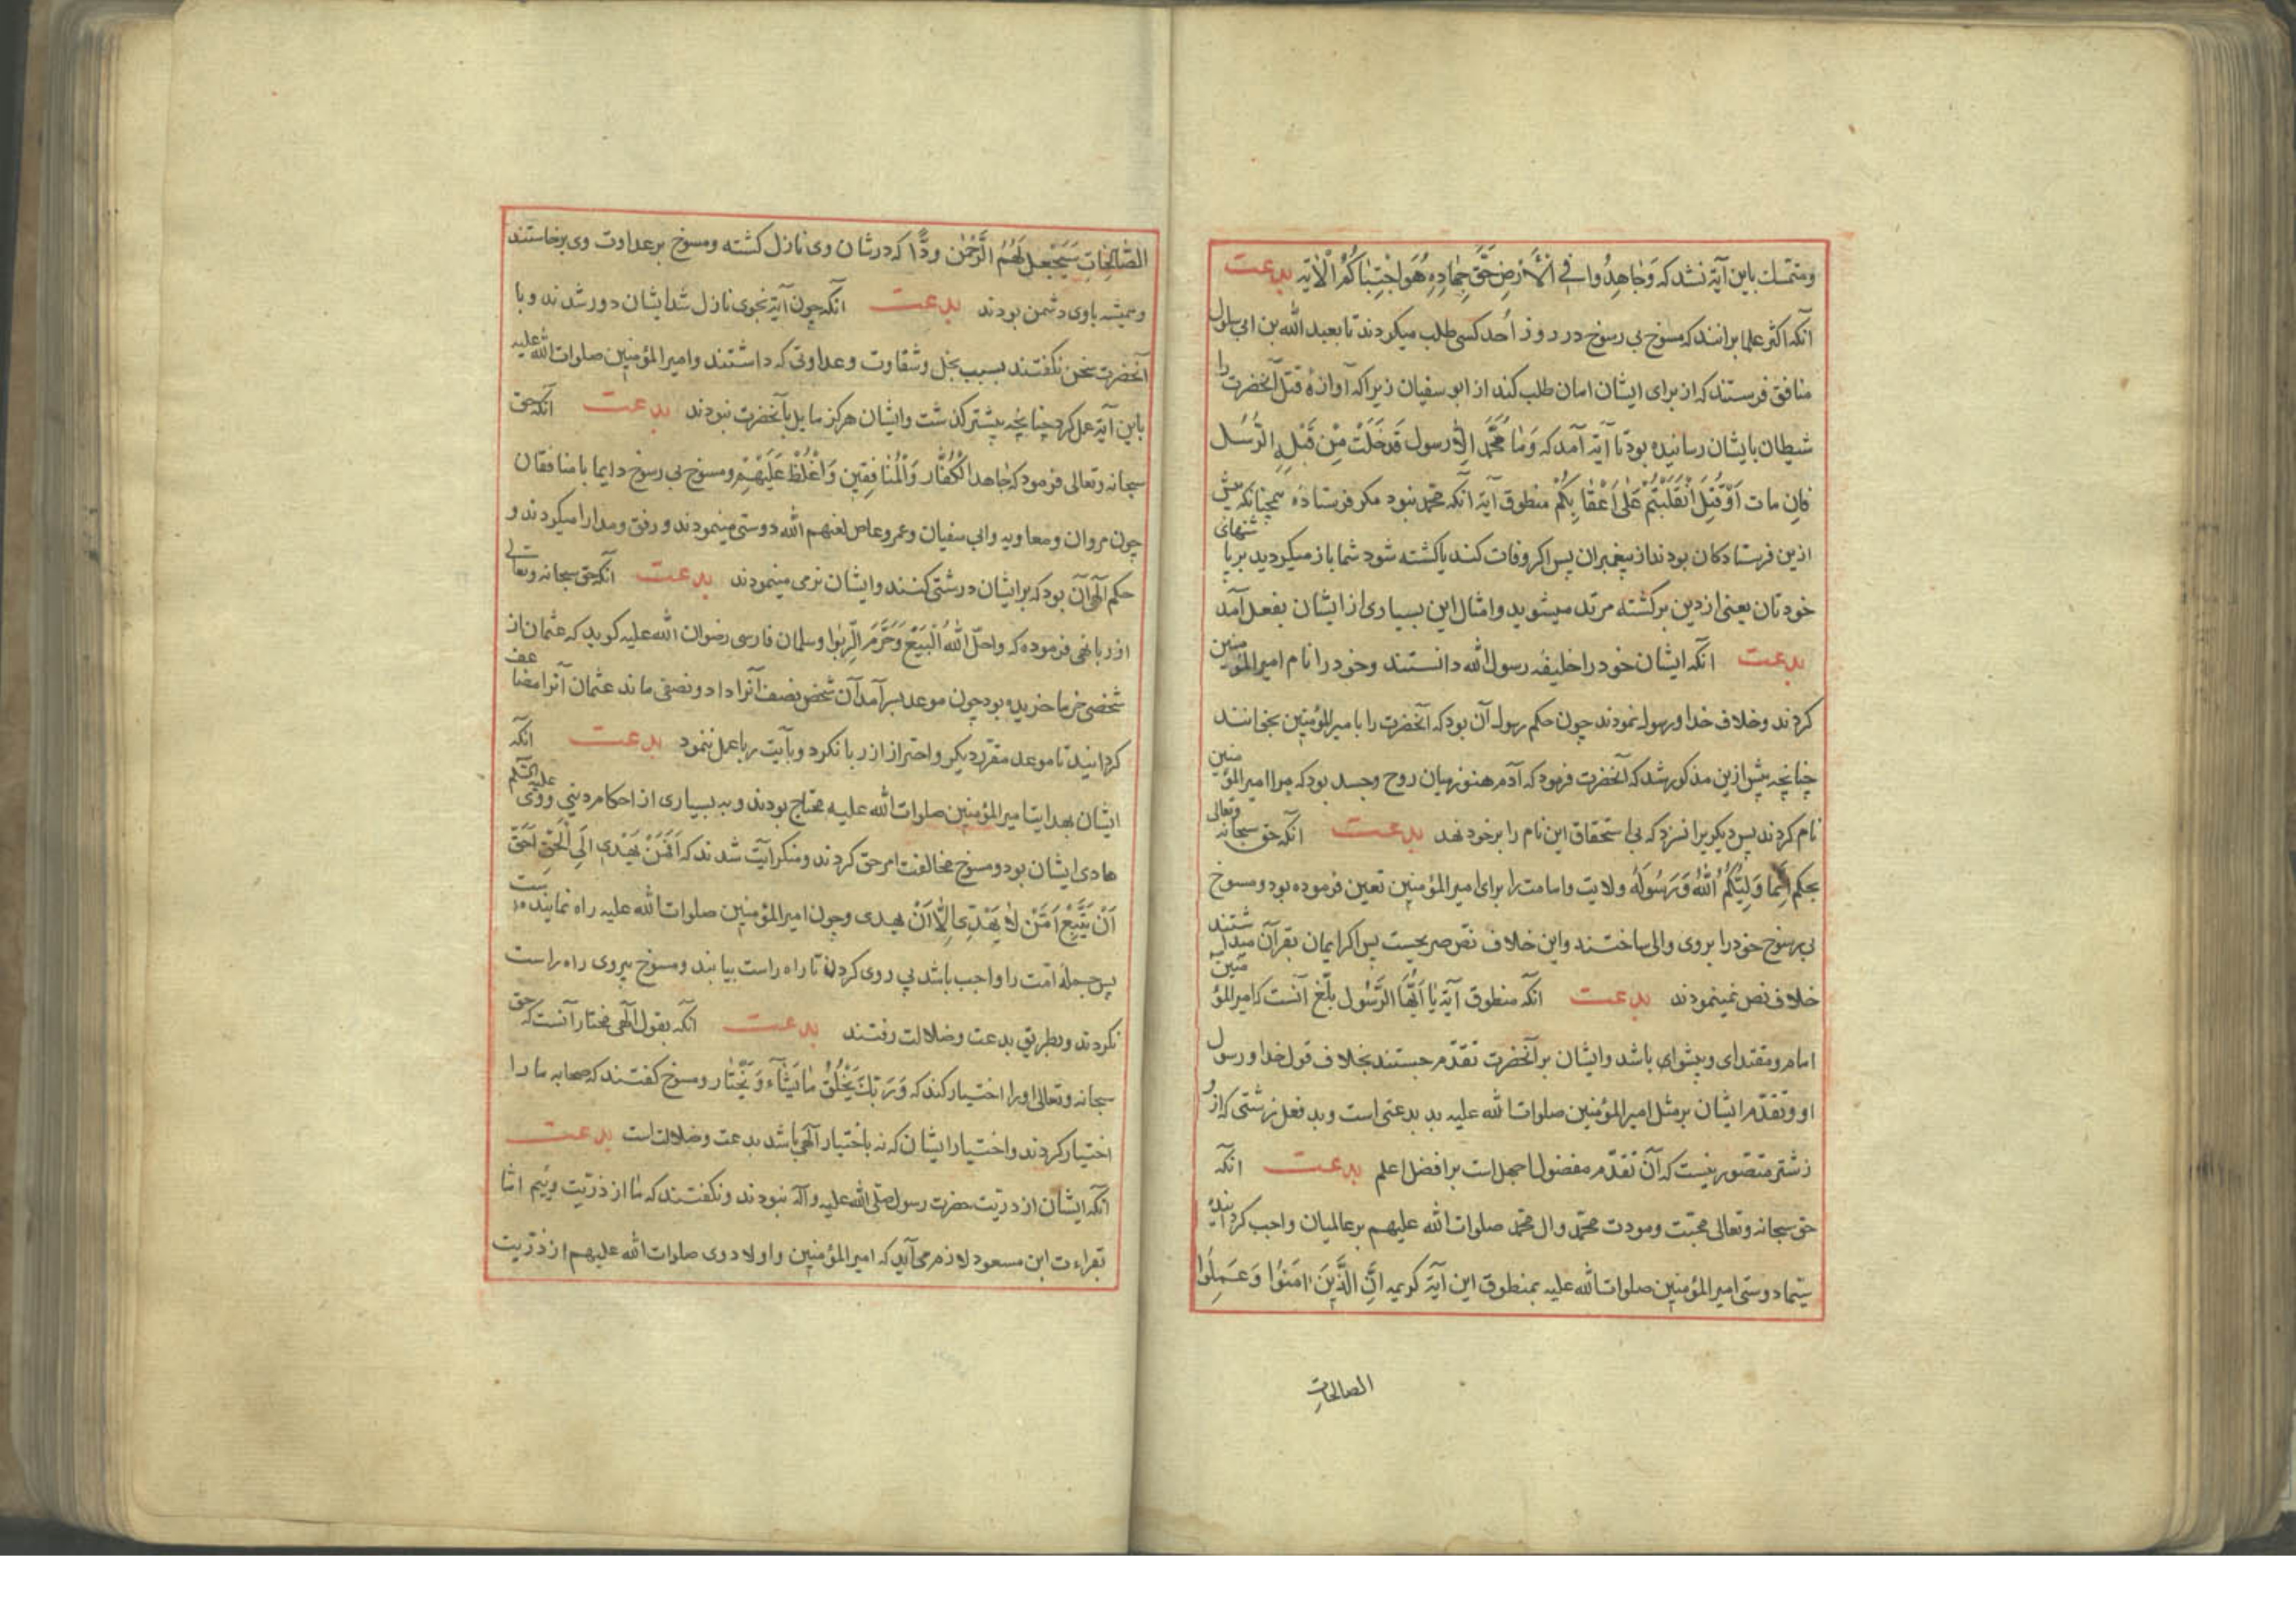 ومتمسك باین آیة نشد که وَجَاهِدُوا فِي الْأَرْضِ حَقَّ جِهَادِهِ هُوَ اجْتَبَاكُمْ الْآیه بدعت
آنکه اکثر علما برانند که مسوخ بی رسوخ در روز اُحد کسی طلب میکردند تا بعبد الله بن ابی سلول
منافق فرستند که از برای ایشان امان طلب کند از ابو سفیان زیرا که آوازهٔ قتل آنحضرت را
شیطان بایشان رسانیده بود تا آیه آمد که وَمَا مُحَمَّد اِلّا رسول قَدْ خَلَتْ مِنْ قَبْلِهِ الرُّسُل
فَاِن مات اَوْ قُتِلَ انْقَلَبْتُمْ عَلٰی اَعْقَابِكُمْ منطوق آیه انکه محمد نبود مکر فرستاده همچنانکه پیش
ازین فرستادکان بودند از پیغمبران پس اکر وفات کند یا کشته شود شما باز میکردید بر پاشنهای
خودتان یعنی از دین برکشته مرتد میشوید وامثال این بسیاری از ایشان بفعل آمد
بدعت انکه ایشان خود را خلیفه رسول الله دانستند وخود را نام امیر المؤمنین
کردند وخلاف خدا ورسول نمودند چون حکم رسول آن بود که آنحضرت را بامیر المؤمنین بخوانند
چنانچه پیش ازین مذکور شد که آنحضرت فرمود که آدم هنوز میان روح وجسد بود که مرا امیر المؤمنین
نام کردند پس دیکریرا نسزد که بی استحقاق این نام را بر خود نهد بدعت انکه حق سبحانه وتعالی
بحکم اِنَّمَا وَلِيُّكُمُ اللهُ وَرَسُولُهُ ولایت وامامت را برای امیر المؤمنین تعین فرموده بود ومسوخ
بی رسوخ خود را بر وی والی ساختند واین خلاف نص صریحست پس اکر ایمان بقرآن میداشتند
خلاف نص نمینمودند بدعت انکه منطوق آیه یَا اَیُّهَا الرَّسُول بلّغ آنست که امیر المؤمنین
امام ومقتدای وپیشوای باشد وایشان بر آنحضرت تقدّم جستند بخلاف قول خدا ورسول
او وتقدّم ایشان بر مثل امیر المؤمنین صلوات الله علیه بد بدعتی است وبد فعل زشتی که از و
زشتر متصّور نیست که آن تقدّم مفضول اجهل است بر افضل اعلم بدعت انکه
حق سبحانه وتعالی محبّت ومودت محمّد وال محمّد صلوات الله علیهم بر عالمیان واجب کردانیده
سیّما دوستی امیر المؤمنین صلوات الله علیه بمنطوق این آیه کریمه اِنَّ الَّذِینَ اٰمَنُوا وَعَمِلُوا
الصالحات
الصَّالِحَاتِ سَيَجْعَلُ لَهُمُ الرَّحْمٰن وُدًّا که در شان وی نازل کشته ومسوخ بر عداوت وی برخاستند
وهمیشه باوی دشمن بودند بدعت انکه چون آیة نجوی نازل شد ایشان دور شدند وبا
آنحضرت سخن نکفتند بسبب بخل وشقاوت وعداوتی که داشتند وامیر المؤمنین صلوات الله علیه
باین آیة عمل کرد چنانچه پیشتر کذشت وایشان هرکز مایل بآنحضرت نبودند بدعت انکه حق
سبحانه وتعالی فرمود که جَاهد الْکُفَّار وَالْمُنَافِقِین وَاغْلُظْ عَلَیْهِمْ ومسوخ بی رسوخ دایما با منافقان
چون مروان ومعاویه وابی سفیان وعمرو عاص لعنهم الله دوستی مینمودند ورفق ومدارا میکردند و
حکم آلهی آن بود که بر ایشان درشتی کنند وایشان نرمی مینمودند بدعت انکه حق سبحانه وتعالی
از ربا نهی فرموده که واحلّ اللهُ الْبَیْعَ وَحَرَّمَ الرِّبٰوا وسلمان فارسی رضوان الله علیه کوید که عثمان از
شخصی خرما خریده بود چون موعد بسر آمد آن شخص نصف آنرا داد ونصفی ماند عثمان آنرا مضاعف
کردانید تا موعد مقرر دیکر واحتراز از ربا نکرد وبآیت ربا عمل ننمود بدعت انکه
ایشان بهدایت امیر المؤمنین صلوات الله علیه محتاج بودند وبه بسیاری از احکام دینی ووی علیه السّلم
هادی ایشان بود ومسوخ مخالفت امر حق کردند ومنکر آیت شدند که اَفَمَنْ یَهْدِی اِلَی الْحَقِّ اَحَقُّ
اَنْ یُتَّبَعَ اَمَّنْ لَا یَهِدِّی اِلَّا اَنْ یهدی وچون امیر المؤمنین صلوات الله علیه راه نماینده است
پس جمله امّت را واجب باشد پی روی کردن تا راه راست بیابند ومسوخ پیروی راه راست
نکردند وبطریق بدعت وضلالت رفتند بدعت انکه بقول آلهی مختار آنست که حق
سبحانه وتعالی او را اختیار کند که وَرَبُّكَ یَخْلُقُ مَا یَشَآء وَیَخْتَار ومسوخ کفتند که صحابه ما را
اختیار کردند واختیار ایشان که نه باختیار آلهی باشد بدعت وضلالت است بدعت
انکه ایشان از ذریّت حضرت رسول صلّی الله علیه وآله نبودند ونکفتند که ما از ذریّت وییم امّا
بقراءت ابن مسعود لازم می آید که امیر المؤمنین واولاد وی صلوات الله علیهم از ذرّیت